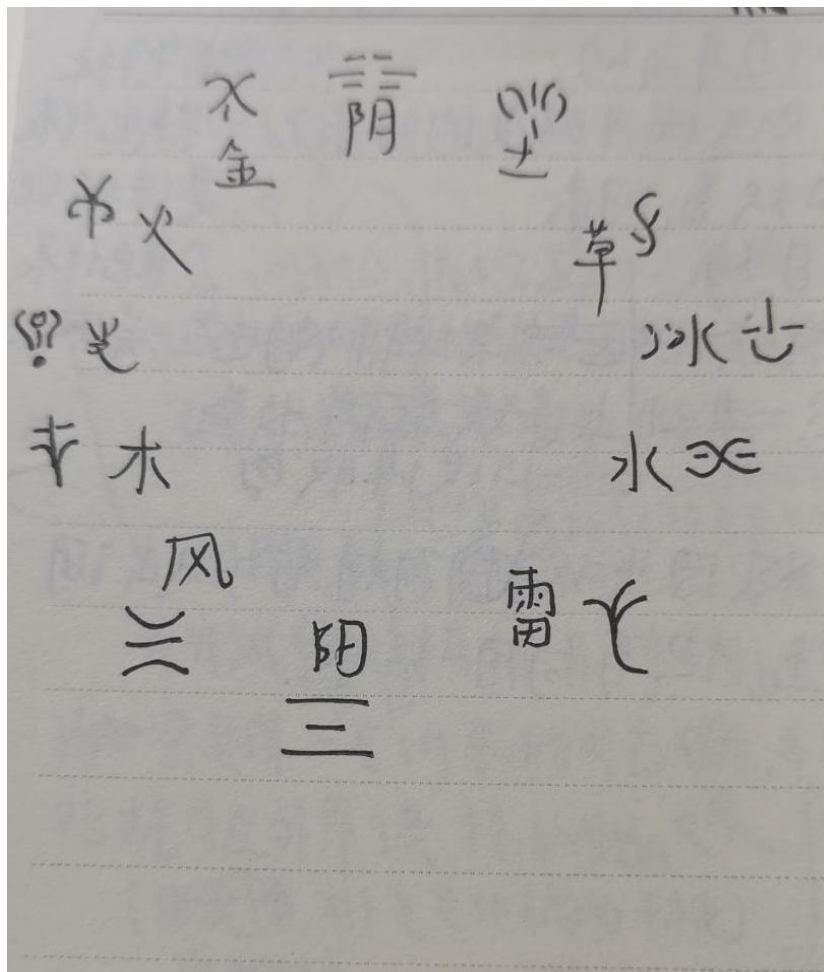 阴
金
火
草
光
冰
木
水
风
雷
阳